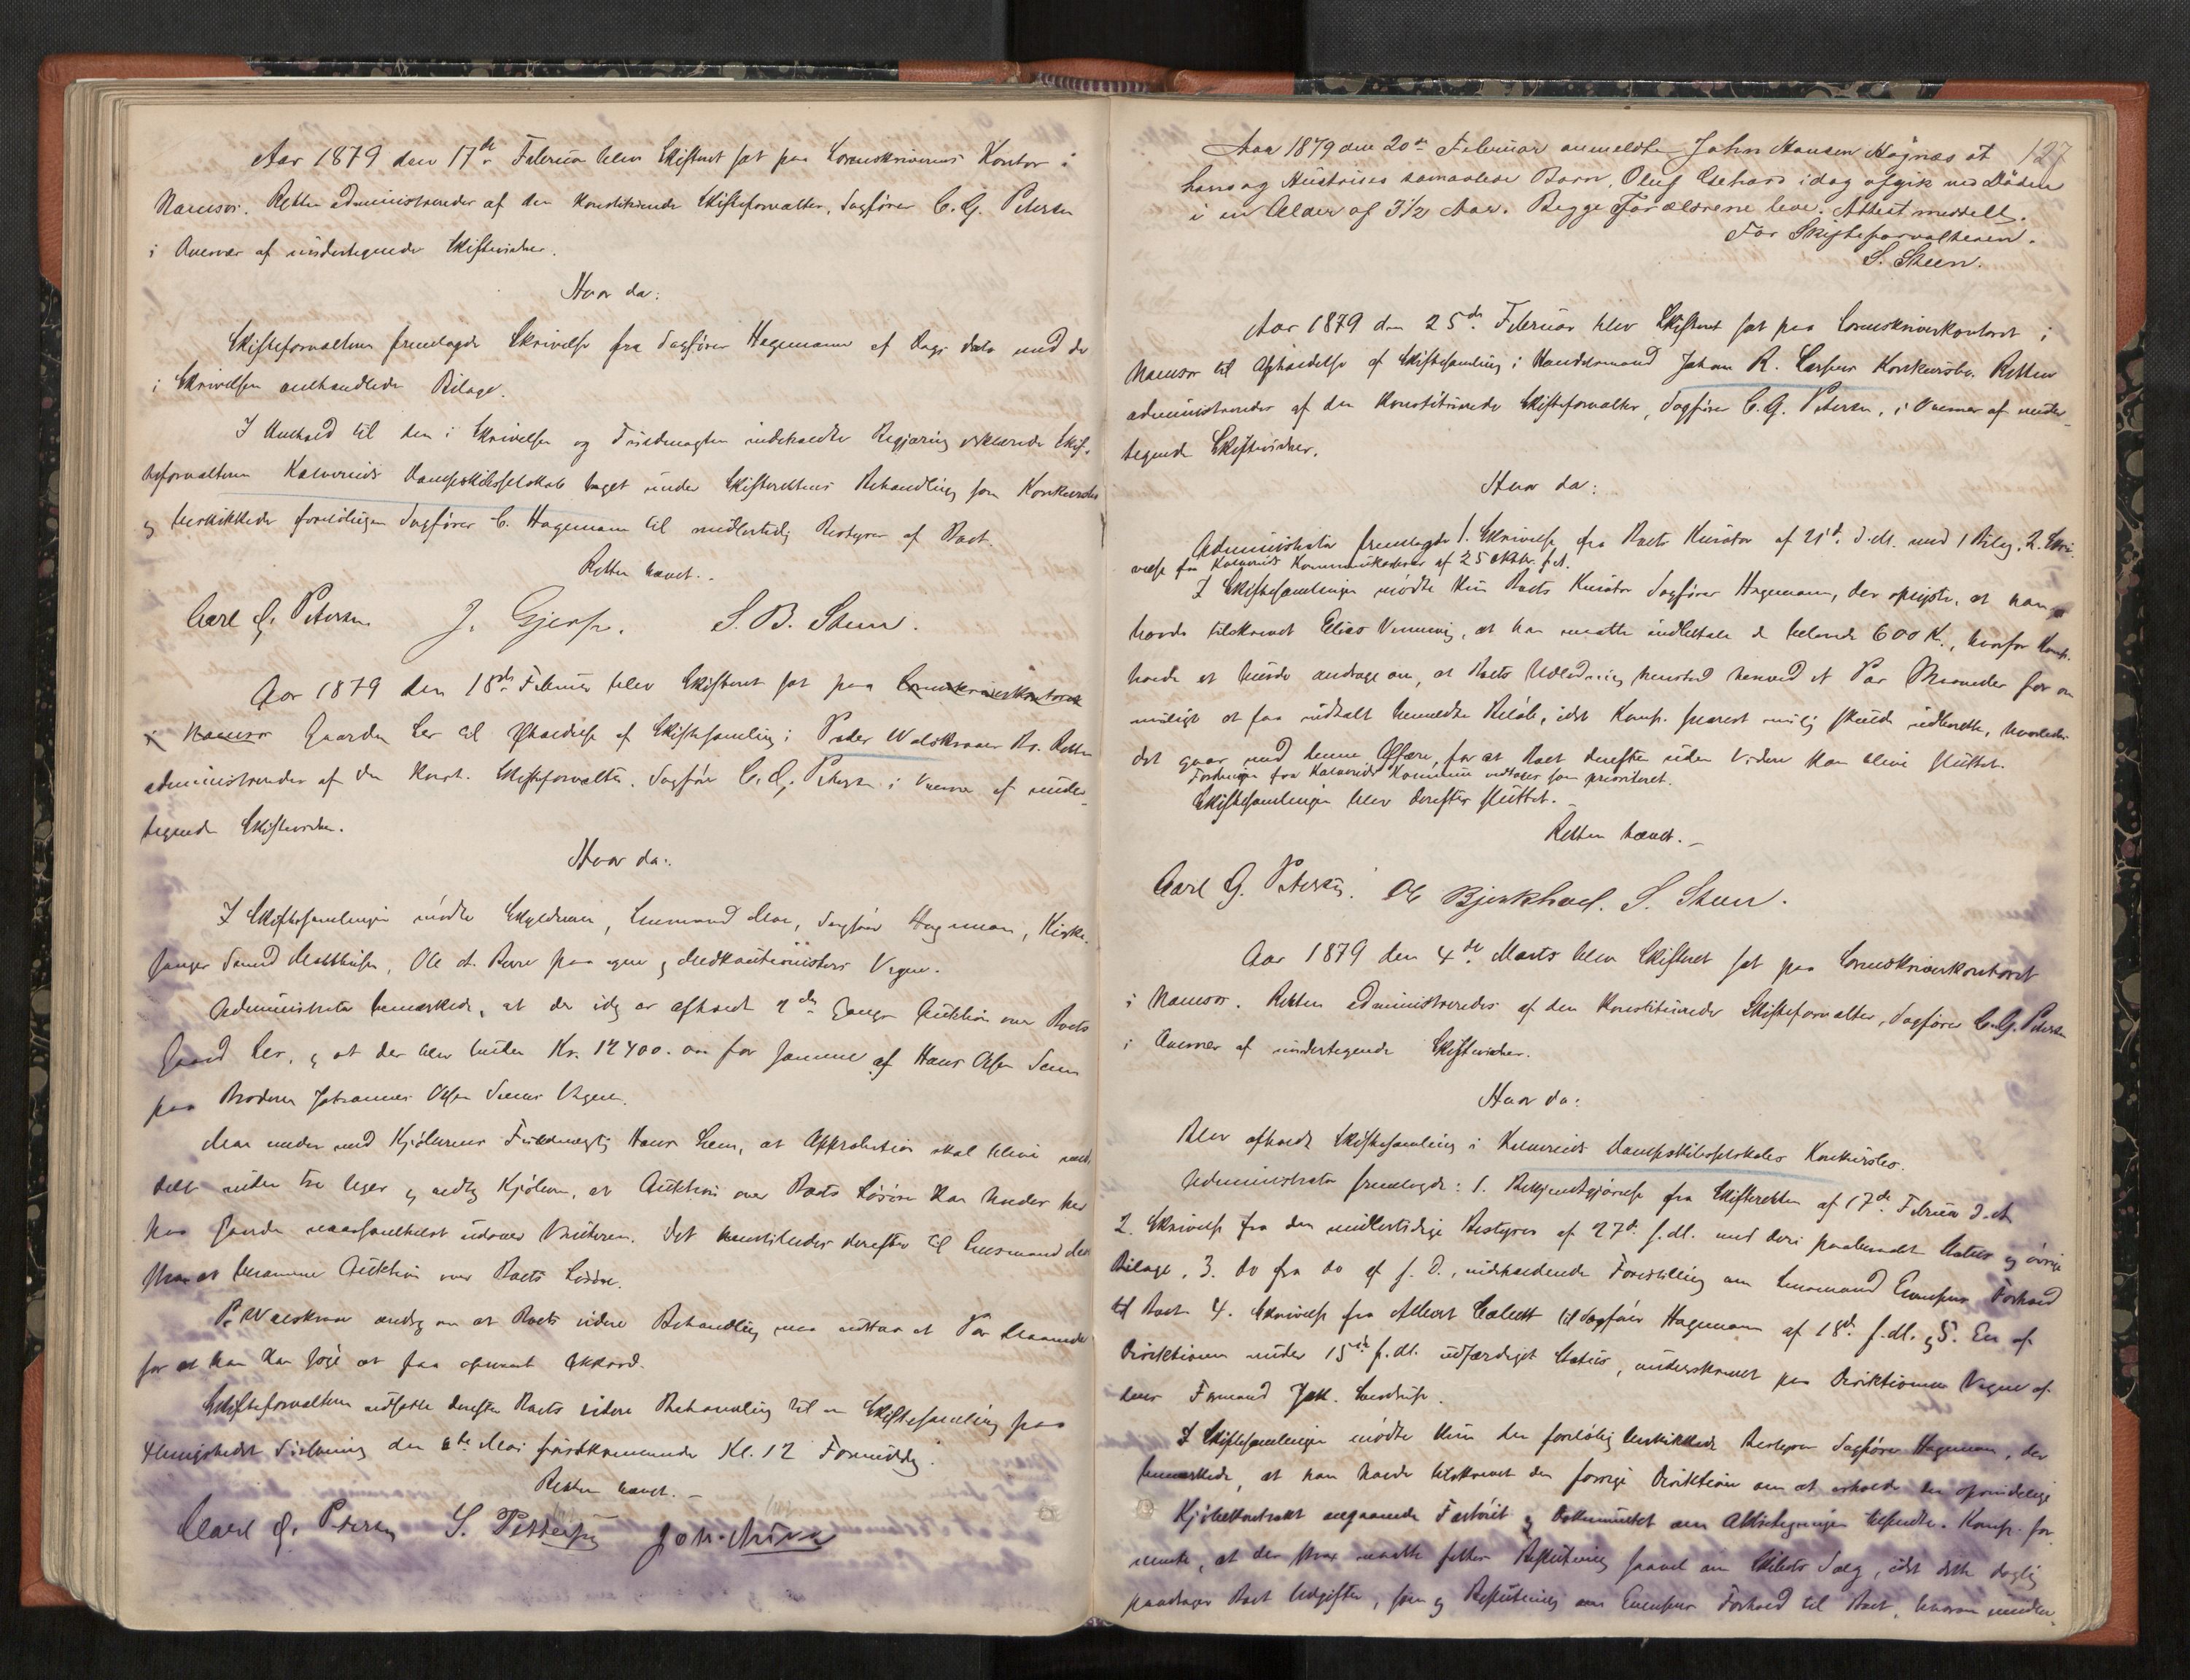 Aar 1879 den 17de Februar blev Skifteret sat paa Sorenskriverens Kontor i
Namsos. Retten administreredes af den konstituerede Skifteforvalter, Sagfører C. G. Petersen
i Overvær af undertegnede Skiftevidner.
Hvor da:
Skifteforvalteren fremlagde Skrivelse fra Sagfører Hagemann af Dags Dato med de
i Skrivelsen omhandlede Bilage.
I Henhold til den i Skrivelsen og Fuldmagten indeholdte Begjæring erklærede Skif-
teforvalteren Kolvereids Dampskibsselskab taget under Skifterettens Behandling som Konkursbo
og beskikkede foreløbigen Sagfører C. Hagemann til midlertidig Bestyrer af Boet.
Retten hævet.
Carl G. Petersen J. Gjersø. S. B. Steen.
Aar 1879 den 18de Februar blev Skifteret sat paa Sorenskriverkontoret
i Namsos Gaarden Ler til Afholdelse af Skiftesamling i Peder Walskraaes Bo. Retten
administreredes af den konst. Skifteforvalter, Sagfører C. G. Petersen i Overvær af under-
tegnede Skiftevidner.
Hvor da:
I Skiftesamlingen mødte Skyldneren, Lensmand Moe, Sagfører Hagemann, Kirke-
sanger Svend Matthisen, Ole A. Berre paa egne og Medkautionisters Vegne.
Administrator bemærkede, at der idag er afholdt 2den Gangs Auktion over Boets
Gaard Ler, og at der blev buden Kr. 12400. oo for samme af Hans Olsen Seem
paa Broderen Johannes Olsen Seems Vegne.
Man enedes med Kjøberens Fuldmægtig Hans Seem, at Approbation skal blive med-
delt inden tre Uger og vedtog Kjøberen, at Auktion over Boets Løsøre kan holdes her
paa Gaarden naarsomhelst udover Vinteren. Det henstilledes derefter til Lensmand Moe
strax at beramme Auktion over Boets Løsøre.
P. Walskraa androg om at Boets videre Behandling maa udstaa et Par Maaneder
for at han kan søge at faa opnaaet Akkord.
Skifteforvalteren udsatte derefter Boets videre Behandling til en Skiftesamling paa
Thingstedet den 6te Mai førstkommende Kl. 12 Formiddag.
Retten hævet.
Carl G. Petersen S. Pettersen
127
Aar 1879 den 20de Februar anmeldte John Hansen Høgnæs at
hans og Hustrues samavlede Barn, Oluf Gerhard idag afgik ved Døden
i en Alder af 3½ Aar. Begge Forældrene leve. Attest meddelt.
For Skifteforvalteren.
S. Steen.
Aar 1879 den 25de Februar blev Skifteret sat paa Sorenskriverkontoret i
Namsos til Afholdelse af Skiftesamling i Handelsmand Johan R. Larsens Konkursbo. Retten
administreredes af den konstituerede Skifteforvalter, Sagfører C. G. Petersen, i Overvær af under-
tegnede Skiftevidner.
Hvor da:
Administrator fremlagde 1. Skrivelse fra Boets Kurator af 21de d. M. med 1 Bilag, 2. Skri-
velse fra Kolvereids Kommunekasserer af 25 Oktbr. f. A.
I Skiftesamlingen mødte kun Boets Kurator Sagfører Hagemann, der oplyste, at han
havde tilskrevet Elias Vennevig, at han maatte indbetale de lovede 600 Kr., hvorfor Komp.
havde at burde andrage om, at Boets Udlodning henstod henved et Par Maaneder for om
muligt at faa udtalt bemeldte Beløb, idet Komp. snarest mulig skulde indberette, hvorledes
det gaar med denne Affære, for at Boet derefter uden Videre kan blive sluttet.
Fordringen fra Kolvereids Kommune vedtages som prioriteret.
Skiftesamlingen blev derefter sluttet.
Retten hævet.
Carl G. Petersen. Ole Bjerkhoel. S. Steen.
Aar 1879 den 4de Marts blev Skifteret sat paa Sorenskriverkontoret
i Namsos. Retten administreredes af den konstituerede Skifteforvalter, Sagfører C. G. Petersen
i Overvær af undertegnede Skiftevidner.
Hvor da:
Blev afholdt Skiftesamling i Kolvereids Dampskibsselskabs Konkursbo.
Administrator fremlagde: 1. Bekjendtgjørelse fra Skifteretten af 17de Februar d. A.
2. Skrivelse fra den midlertidige Bestyrer af 27de f. M. med deri paaberaabt Status og øvrige
Bilage, 3. do fra do af s. D., indeholdende Forestilling om Lensmand Evensens Forhold
til Boet 4. Skrivelse fra Albert Collett til Sagfører Hagemann af 18de f. M. og 5. En af
Direktionen under 15de f. M. udfærdiget Status, underskrevet paa Direktionens Vegne af
dens Formand Jak. Sverdrup.
I Skiftesamlingen mødte kun den foreløbig beskikkede Bestyrer Sagfører Hagemann, der
bemærkede, at han havde tilskrevet den forrige Direktion om at erholde den oprindelige
Kjøbekontrakt angaaende Fartøiet og Dokumentet om Aktietegningen tilsendte. Komp. for-
mente, at der strax maatte fattes Beslutning saavel om Skibets Salg, idet dette daglig
paadrager Boet Udgifter, som og Beslutning om Evensens Forhold til Boet, hvorom midler-